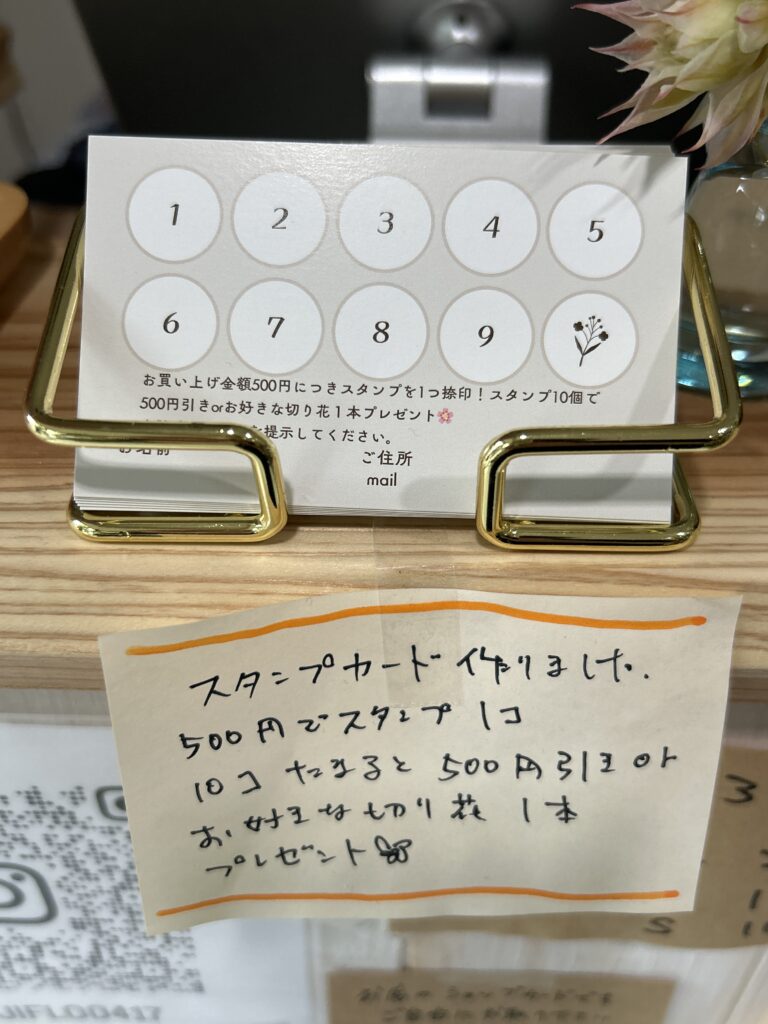 1 2 3 4 5
6 7 8 9
お買い上げ金額500円につきスタンプを1つ捺印！スタンプ10個で
500円引きorお好きな切り花１本プレゼント🌸
提示してください。
お名前
ご住所
mail
スタンプカード作りました.
500円でスタンプ1コ
10コたまると500円引きor
お好きな切り花1本
プレゼント
3
1
S 10
JIFLD0417